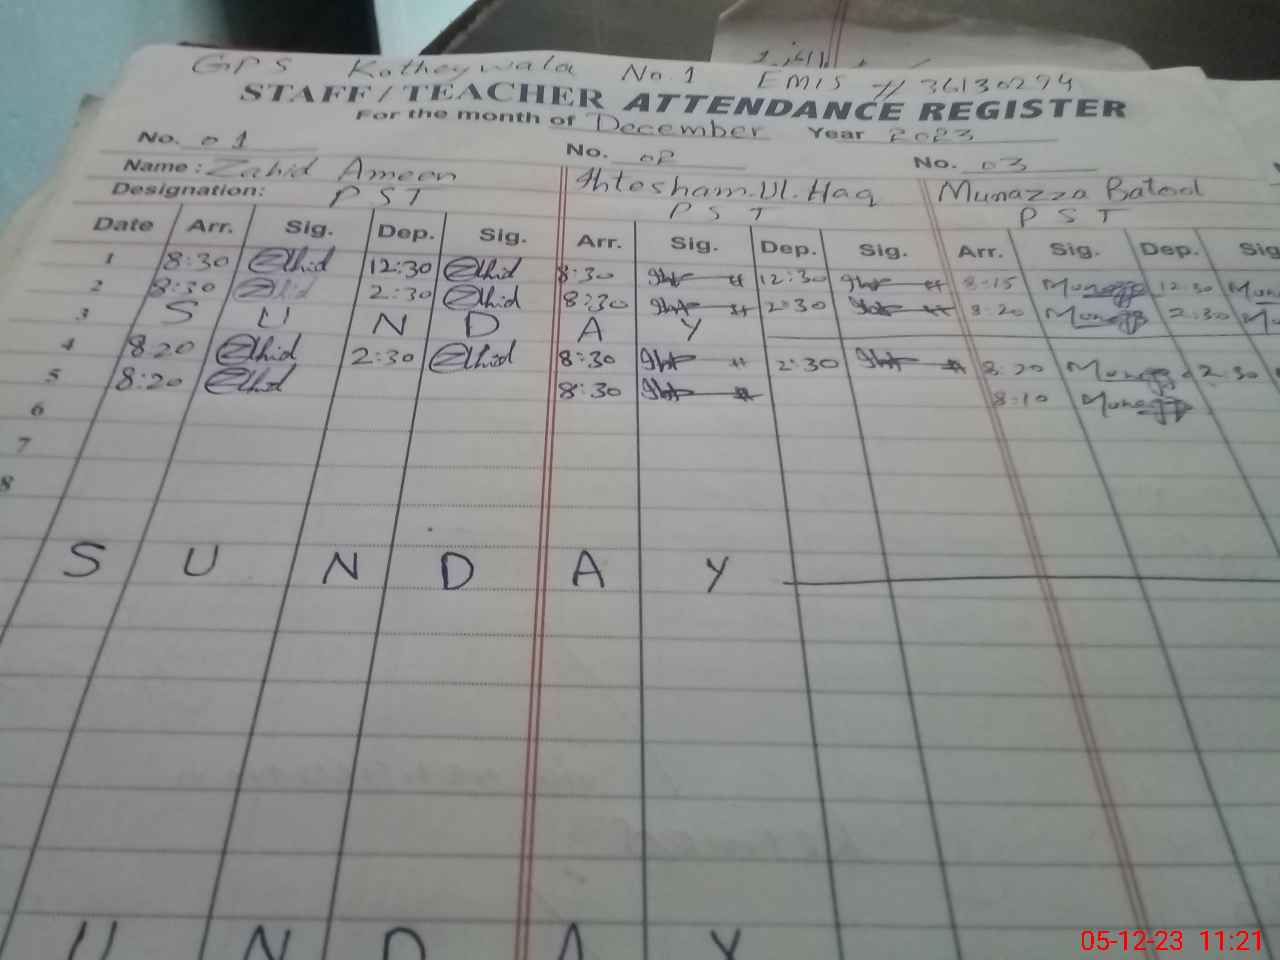 GPS Kotheywala No.1 EMIS # 36130294
STAFF/TEACHER ATTENDANCE REGISTER
For the month of December Year 2023
No. 01 No. 02 No. 03
Name: Zahid Ameen Ihtesham.Ul.Haq Munazza Batool
Designation: PST PST PST
Date Arr. Sig. Dep. Sig. Arr. Sig. Dep. Sig. Arr. Sig. Dep. Sig
1 8:30 Zahid 12:30 Zahid 8:30 12:30 8:15 12:30
2 8:30 Zahid 2:30 Zahid 8:30 2:30 8:20 2:30
3 S U N D A Y
4 8:20 Zahid 2:30 Zahid 8:30 2:30 8:20 2:30
5 8:20 Zahid 8:30 8:10
6
7
8
S U N D A Y
U N D A Y
05-12-23 11:21